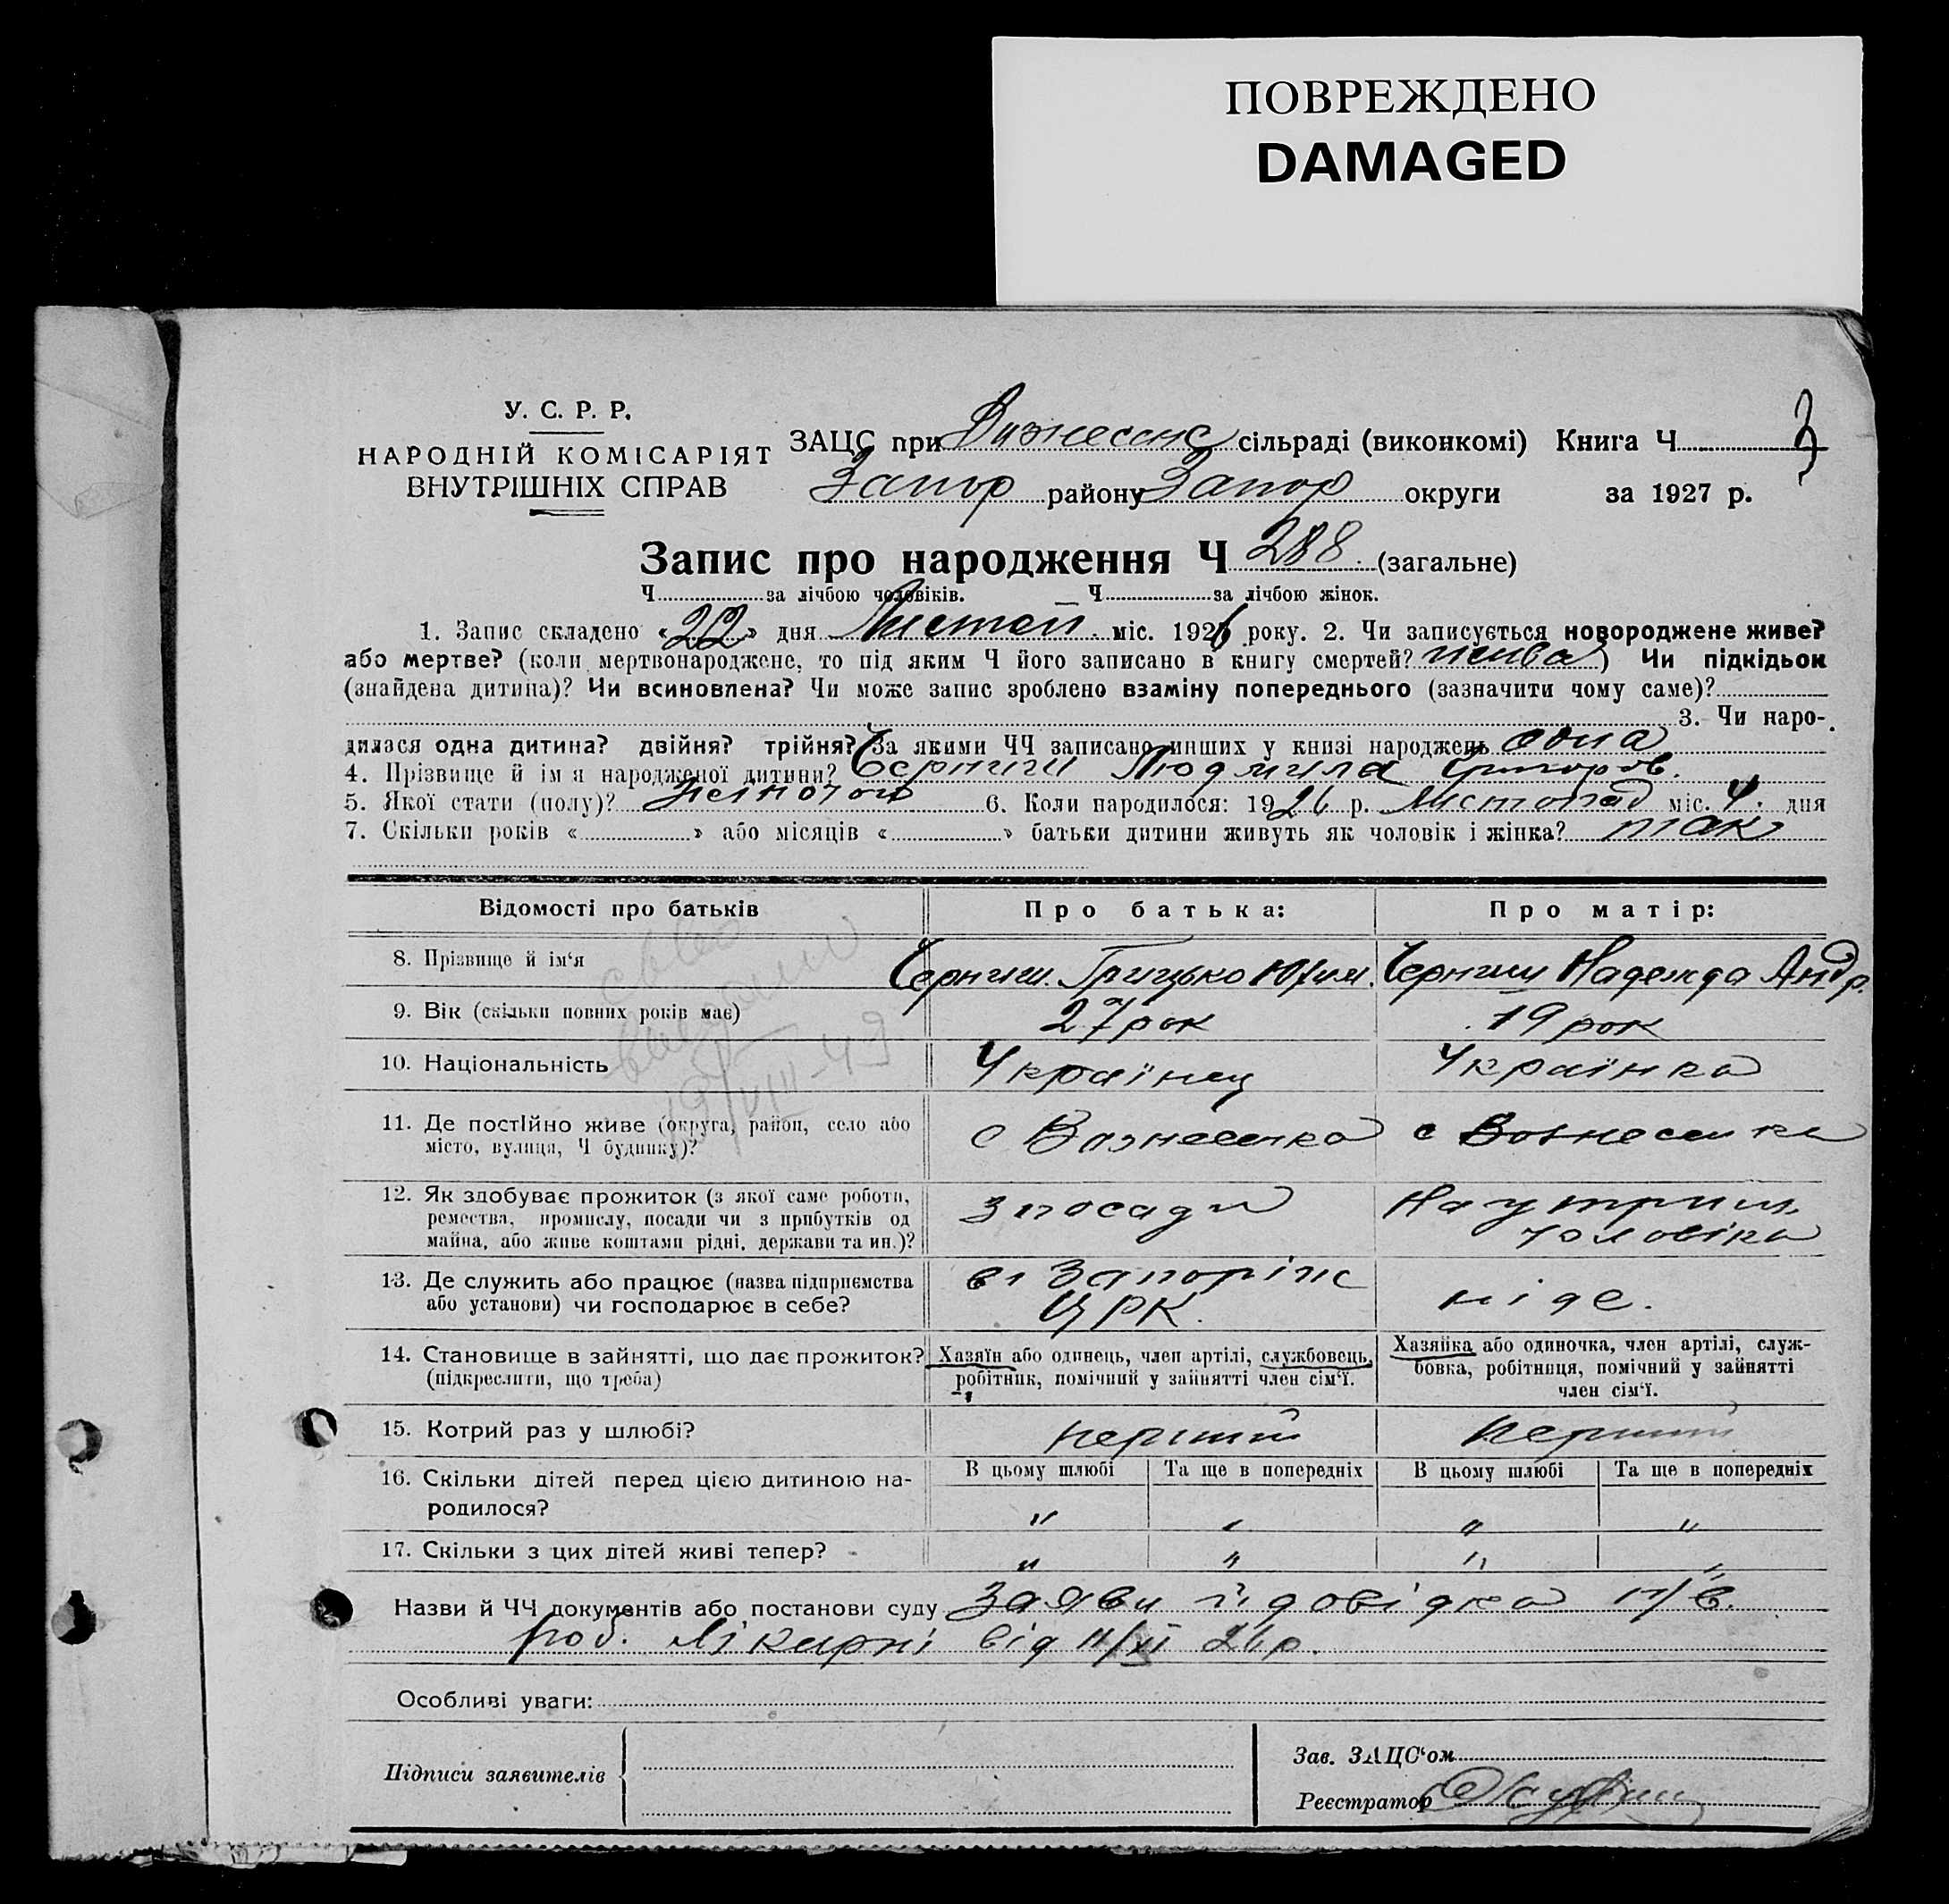 ПОВРЕЖДЕНО
DAMAGED
У. С. Р. Р.
НАРОДНІЙ КОМІСАРІЯТ
ВНУТРІШНІХ СПРАВ
ЗАЦС при Вознесенс сільраді (виконкомі) Книга Ч 3
Запор району Запор округи за 1927 р.
Запис про народження Ч 288. (загальне)
Ч за лічбою чоловіків. Ч за лічбою жінок.
1. Запис складено «22» дня Листоп. міс. 1926 року. 2. Чи записується новороджене живе?
або мертве? (коли мертвонароджене, то під яким Ч його записано в книгу смертей? жива) Чи підкідьок
(знайдена дитина)? Чи всиновлена? Чи може запис зроблено взаміну попереднього (зазначити чому саме)?
3. Чи наро-
дилася одна дитина? двійня? трійня? За якими ЧЧ записано инших у книзі народжень одна
4. Прізвище й ім'я народженої дитини? Черниш Людмила Григоров.
5. Якої стати (полу)? жіночої 6. Коли народилося: 1926 р. Листопад міс. 4. дня
7. Скільки років « » або місяців « » батьки дитини живуть як чоловік і жінка? так
Відомості про батьків Про батька: Про матір:
8. Прізвище й ім'я Черниш. Грицько Юхим. Черниш Надежда Андр.
9. Вік (скільки повних років має) 27 рок 19 рок
10. Національність Українец Українка
11. Де постійно живе (округа, район, село або
місто, вулиця, Ч будинку)? с Вознесенка с Вознесенка
12. Як здобуває прожиток (з якої саме роботи,
ремества, промислу, посади чи з прибутків од
майна, або живе коштами рідні, держави та ин.)? з посади На утрим. чоловіка
13. Де служить або працює (назва підприємства
або установи) чи господарює в себе? в Запоріж ЦРК. ніде.
14. Становище в зайнятті, що дає прожиток?
(підкреслити, що треба)
Хазяїн або одинець, член артілі, службовець,
робітник, помічний у зайнятті член сім'ї.
Хазяйка або одиночка, член артілі, служ-
бовка, робітниця, помічний у зайнятті
член сім'ї.
15. Котрий раз у шлюбі? перший перший
16. Скільки дітей перед цією дитиною на-
родилося?
В цьому шлюбі Та ще в попередніх В цьому шлюбі Та ще в попередніх
" " " "
17. Скільки з цих дітей живі тепер? " " " "
Назви й ЧЧ документів або постанови суду Заяви й довідка
роб. лікарні від 11/XI 26 р.
Особливі уваги:
Підписи заявителів
Зав. ЗАЦС'ом
Реєстратор
19/VIII-49